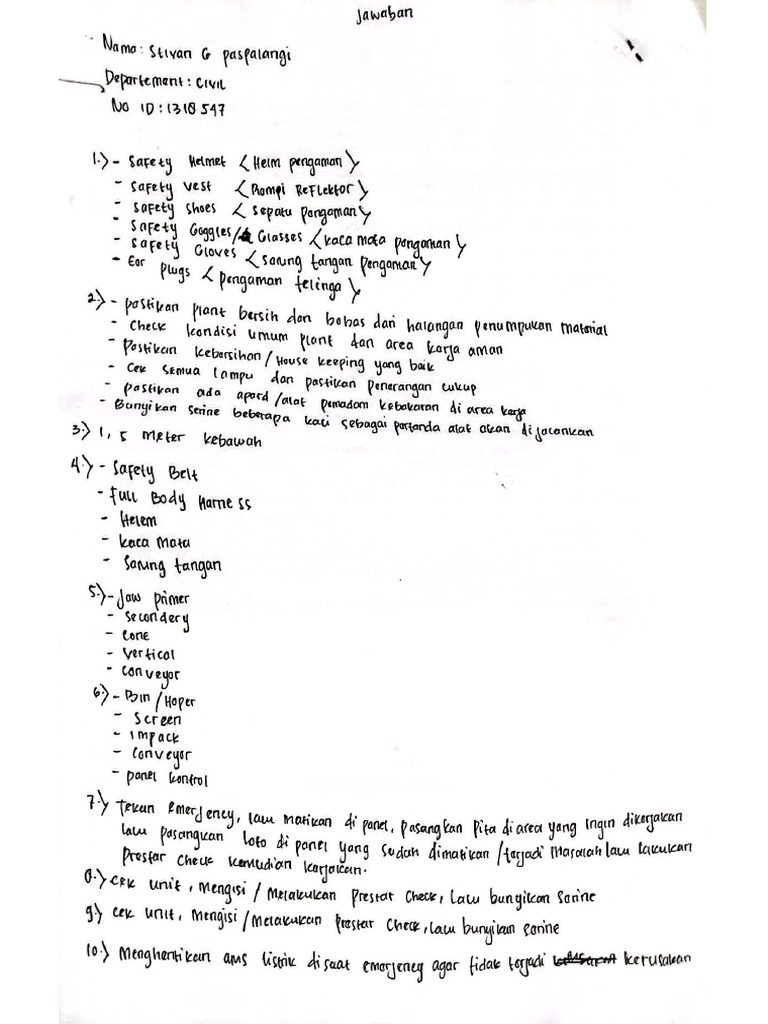 Jawaban
Nama: Stivan G paspalangi
Departement: CIVIL
No ID: 1318547
1.) - Safety Helmet < Helm pengaman >
- Safety vest < Rompi Reflektor >
- Safety shoes < sepatu pangaman >
- Safety Goggles/Glasses < kaca mata pangaman >
- Safety Gloves < sarung tangan pengaman >
- Ear plugs < pengaman telinga >
2.) - pastikan plant bersih dan babas dari halangan penumpukan material
- Check kondisi umum plant dan area karja aman
- Pastikan kebarsihan/House keeping yang baik
- Cek semua lampu dan pastikan penerangan cukup
- pastikan ada apard/alat pemadam kebakaran di area karja
- Bunyikan serine beberapa kali sebagai partanda alat akan dijalankan
3.) 1,5 meter kebawah
4.) - Safety Belt
- Full Body Harness
- Helem
- kaca mata
- Sarung tangan
5.) - Jaw primer
- secondery
- cone
- vertical
- conveyor
6.) - Bin/Hoper
- Screen
- impack
- Conveyor
- panel kontrol
7.) Tekan Emerjency, lalu matikan di panel, pasangkan pita di area yang ingin dikerjakan
lalu pasangkan loto di panel yang sudah dimatikan/terjadi masalah lalu lakukan
prestar check kemudian karjakan.
8.) cek unit, mengisi/Melakukan prestar check, lalu bunyikan sarine
9.) cek unit, Mengisi/Melakukan prestar check, lalu bunyikan sarine
10.) Menghentikan arus listrik disaat emerjency agar tidak terjadi kerusakan